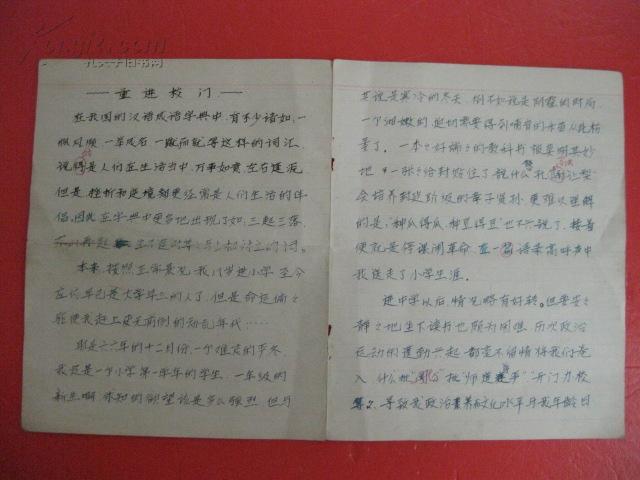 ——重进校门——
在我国的汉语成语字典中,有不少诸如,一
帆风顺 一举成名 一蹴而就等这样的词汇,
说得是人们在生活当中,万事如意,左右逢源,
但是,挫折和逆境却更经常是人们生活的伴
侣,因此在字典中更多地出现了如,三起三落,
本来,按照正常景况,我八岁进小学,至今
应该早已是大学毕业的人了,但是命运偏偏
驱使我赶上史无前例的动乱年代……
那是六六年的十二月份,一个难忘的严冬,
我还是一个小学第一学年的学生,一年级的
新生啊 求知的欲望该是多么强烈,但与
其说是寒冷的冬天,倒不如说是阴霾的时局,
一个细嫩的,迫切需要得到哺育的幼苗从此枯
萎了。一本本好端端的教科书被莫明其妙
地一张张给封贴住了,说什么"孔融让梨"
会培养封建阶级的孝子贤孙,更难以理解
的是,"种瓜得瓜,种豆得豆"也不许说了,接着
便就是停课闹革命,在一篇语录高呼声中
我送走了小学生涯。
进中学以后,情况略有好转。但要安安
静静地坐下读书也颇为困难,历次政治
运动的蓬勃兴起,都毫不留情将我们卷
入,什么批"周公"批"师道尊严"开门办校
等等,导致我政治素养和文化水平与我年龄日